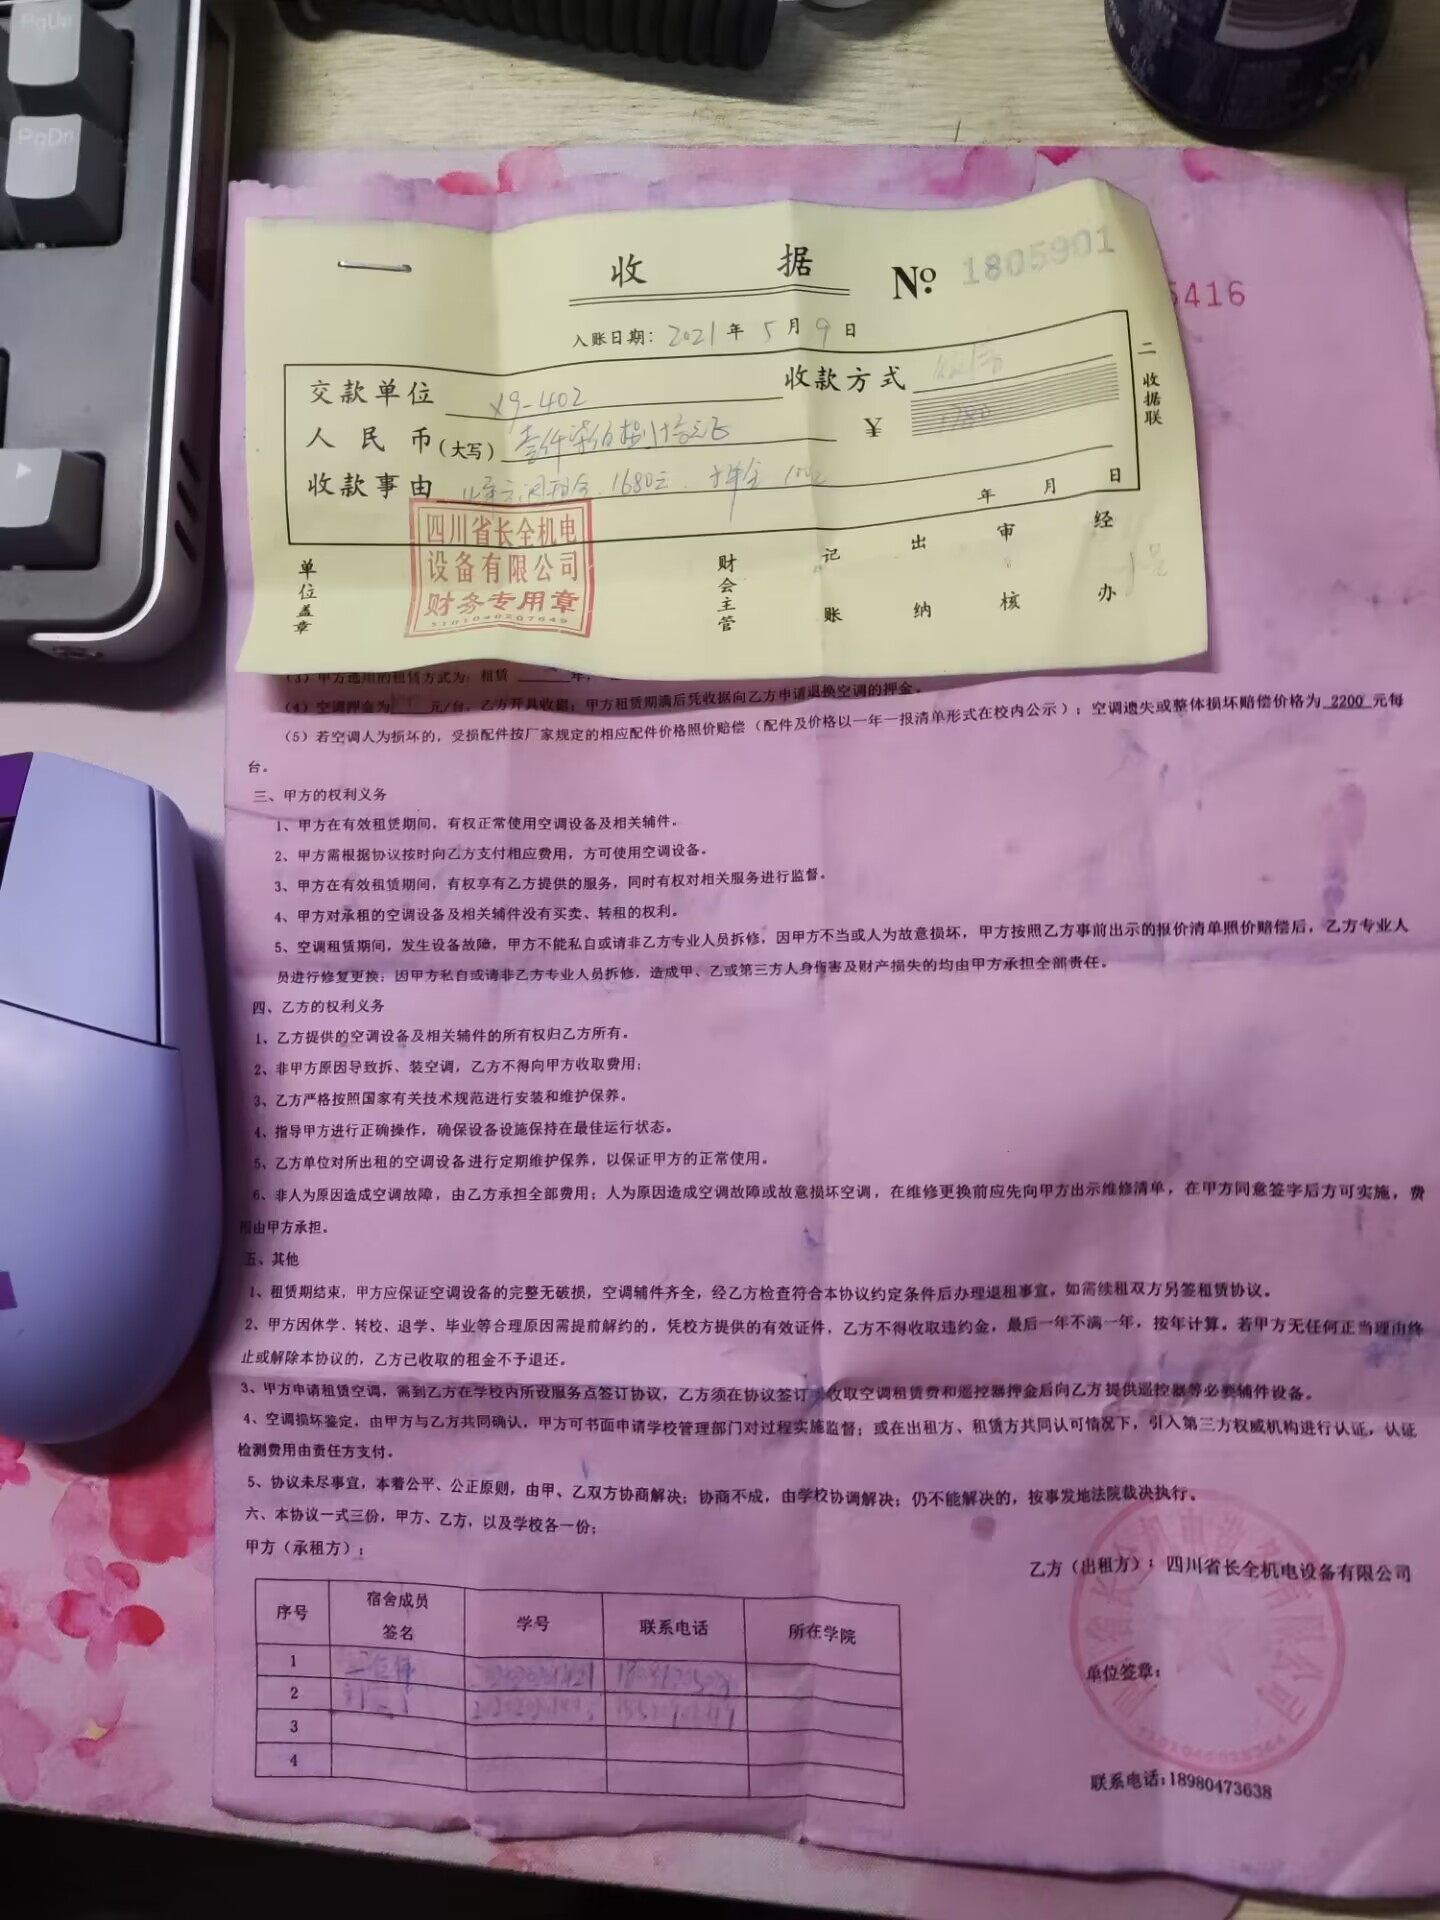 PgUp
PgDn
收 据 № 1805901
5416
入账日期：2021年5月9日
交款单位 x9-402 收款方式
人民币(大写) ¥ 1780
收款事由 1680元 100元
年 月 日
二 收据联
单位盖章
财会主管
记账
出纳
审核
经办
四川省长全机电
设备有限公司
财务专用章
(3) 甲方选用的租赁方式为：租赁 年；
(4) 空调押金为 元/台，乙方开具收据；甲方租赁期满后凭收据向乙方申请退换空调的押金。
(5) 若空调人为损坏的，受损配件按厂家规定的相应配件价格照价赔偿（配件及价格以一年一报清单形式在校内公示）；空调遗失或整体损坏赔偿价格为 2200 元每
台。
三、甲方的权利义务
1、甲方在有效租赁期间，有权正常使用空调设备及相关辅件。
2、甲方需根据协议按时向乙方支付相应费用，方可使用空调设备。
3、甲方在有效租赁期间，有权享有乙方提供的服务，同时有权对相关服务进行监督。
4、甲方对承租的空调设备及相关辅件没有买卖、转租的权利。
5、空调租赁期间，发生设备故障，甲方不能私自或请非乙方专业人员拆修，因甲方不当或人为故意损坏，甲方按照乙方事前出示的报价清单照价赔偿后，乙方专业人
员进行修复更换；因甲方私自或请非乙方专业人员拆修，造成甲、乙或第三方人身伤害及财产损失的均由甲方承担全部责任。
四、乙方的权利义务
1、乙方提供的空调设备及相关辅件的所有权归乙方所有。
2、非甲方原因导致拆、装空调，乙方不得向甲方收取费用；
3、乙方严格按照国家有关技术规范进行安装和维护保养。
4、指导甲方进行正确操作，确保设备设施保持在最佳运行状态。
5、乙方单位对所出租的空调设备进行定期维护保养，以保证甲方的正常使用。
6、非人为原因造成空调故障，由乙方承担全部费用；人为原因造成空调故障或故意损坏空调，在维修更换前应先向甲方出示维修清单，在甲方同意签字后方可实施，费
由甲方承担。
五、其他
1、租赁期结束，甲方应保证空调设备的完整无破损，空调辅件齐全，经乙方检查符合本协议约定条件后办理退租事宜。如需续租双方另签租赁协议。
2、甲方因休学、转校、退学、毕业等合理原因需提前解约的，凭校方提供的有效证件，乙方不得收取违约金，最后一年不满一年，按年计算。若甲方无任何正当理由终
止或解除本协议的，乙方已收取的租金不予退还。
3、甲方申请租赁空调，需到乙方在学校内所设服务点签订协议，乙方须在协议签订 收取空调租赁费和遥控器押金后向乙方提供遥控器等必要辅件设备。
4、空调损坏鉴定，由甲方与乙方共同确认，甲方可书面申请学校管理部门对过程实施监督；或在出租方、租赁方共同认可情况下，引入第三方权威机构进行认证，认证
检测费用由责任方支付。
5、协议未尽事宜，本着公平、公正原则，由甲、乙双方协商解决；协商不成，由学校协调解决；仍不能解决的，按事发地法院裁决执行。
六、本协议一式三份，甲方、乙方，以及学校各一份；
甲方（承租方）：
乙方（出租方）：四川省长全机电设备有限公司
序号 宿舍成员签名 学号 联系电话 所在学院
1
2
3
4
单位签章：
联系电话：18980473638